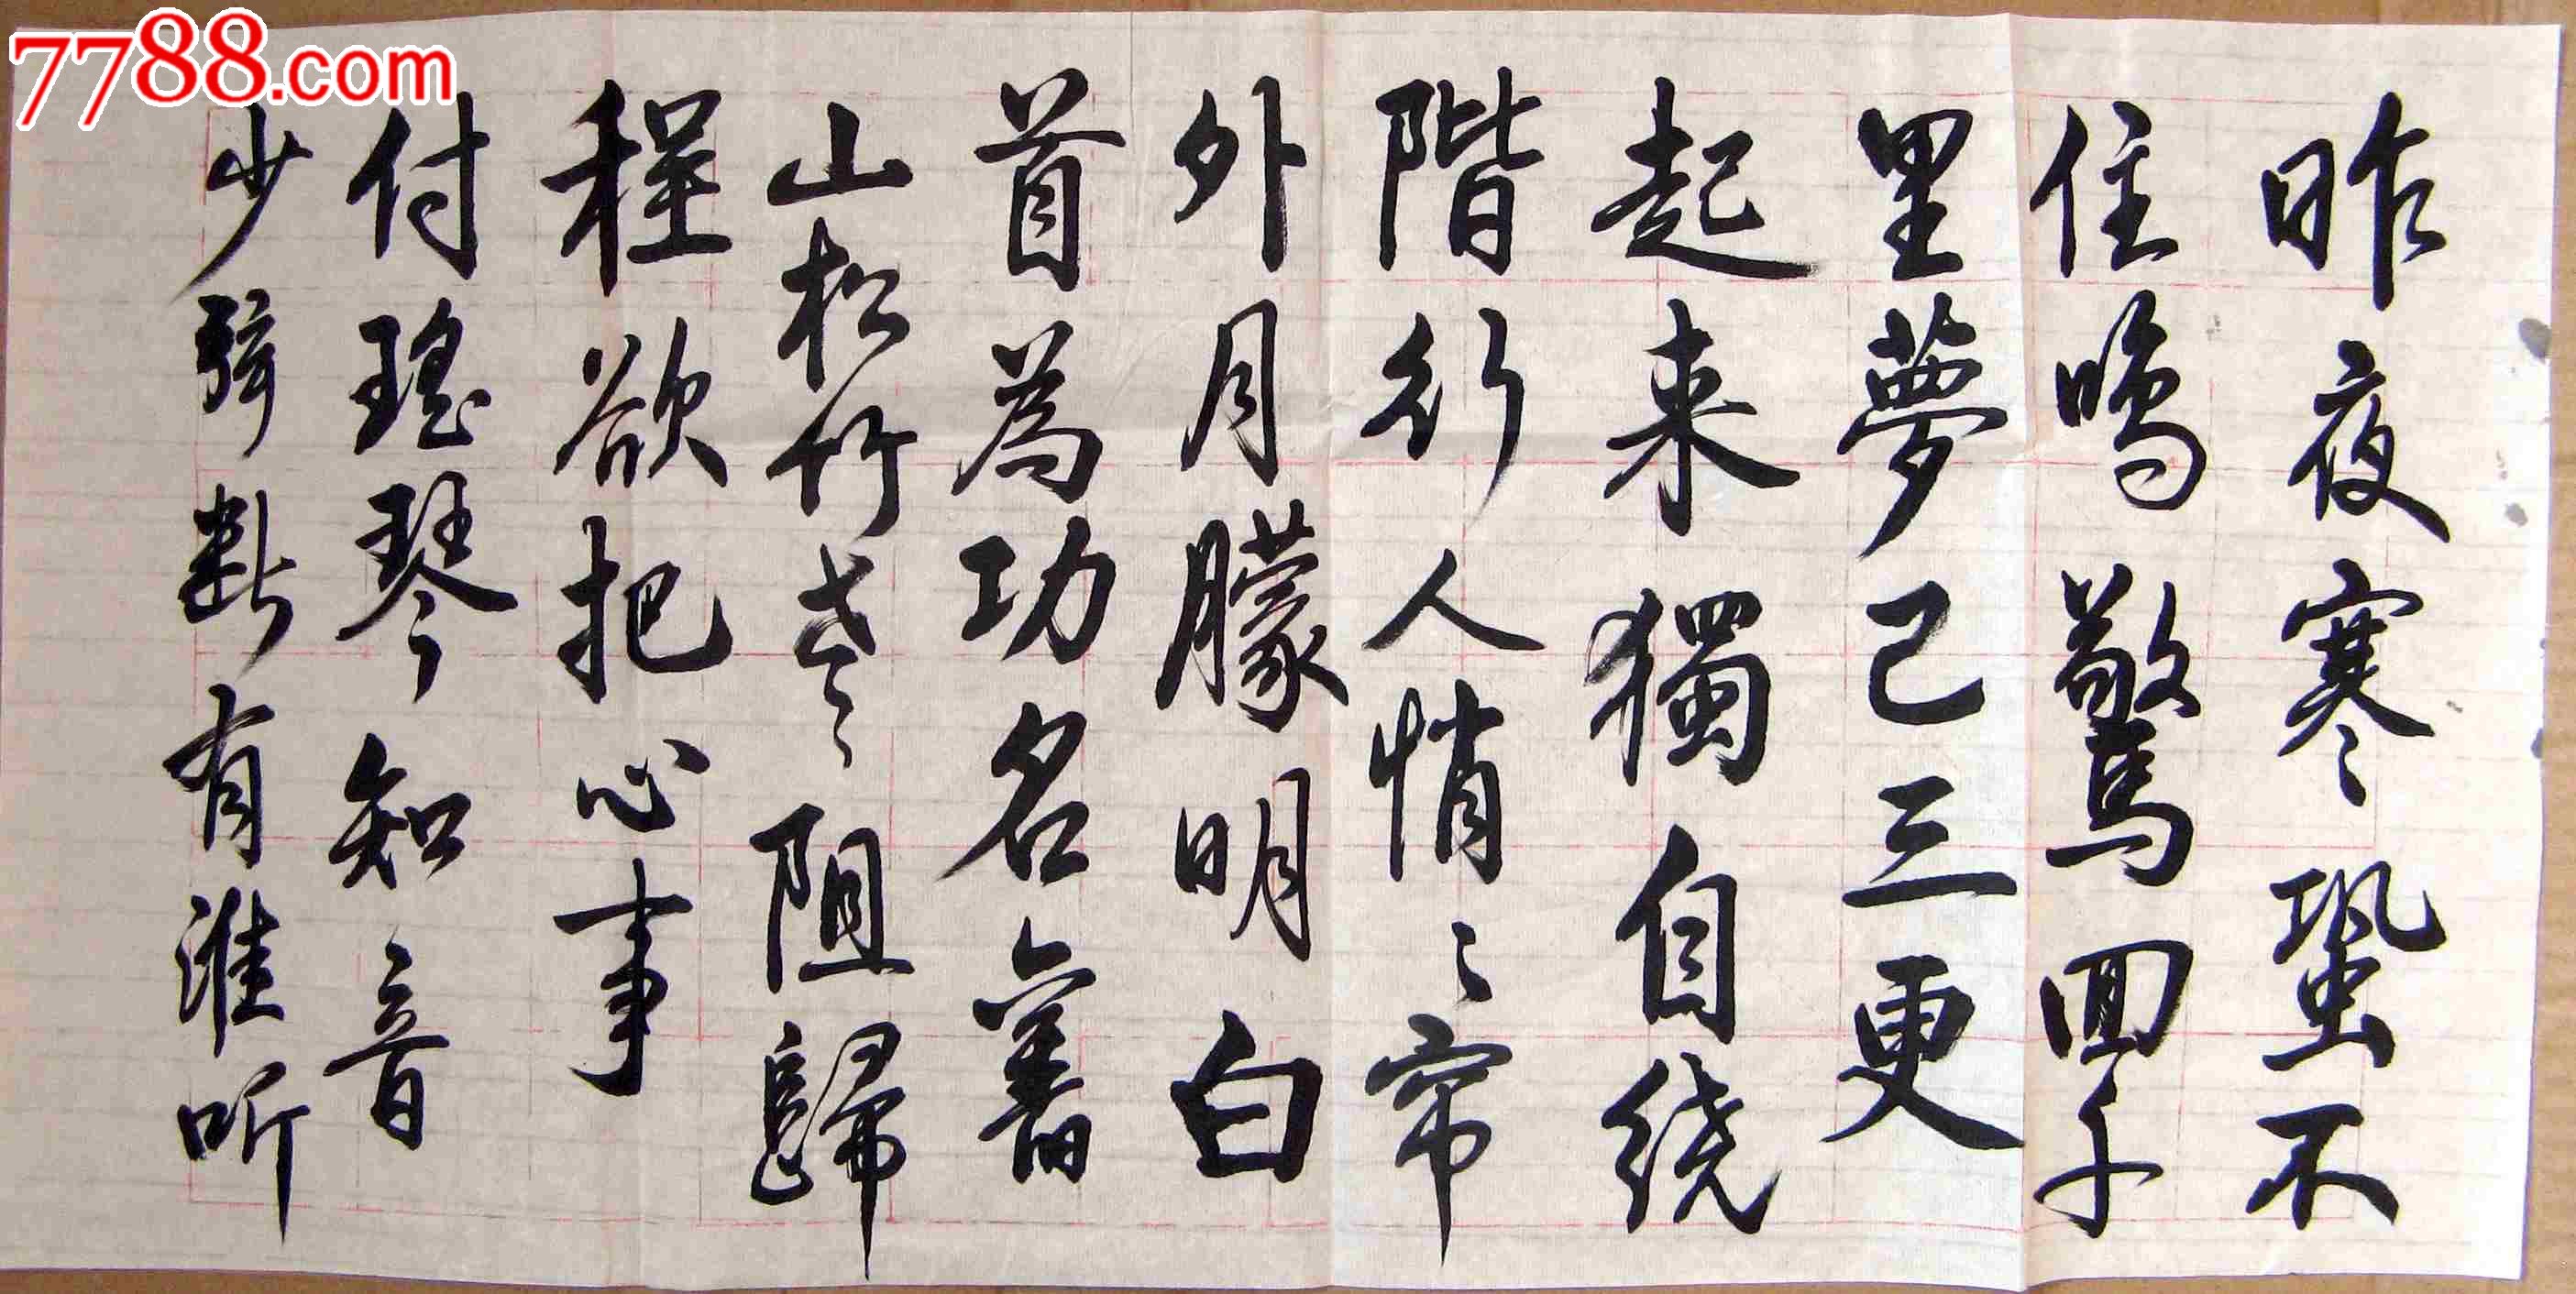 昨夜寒蛩不
住鳴驚回千
里夢已三更
起来獨自绕
階行人悄〻帘
外月朦明白
首為功名舊
山松竹老阻歸
程欲把心事
付瑤琴知音
少弦断有谁听
7788.com